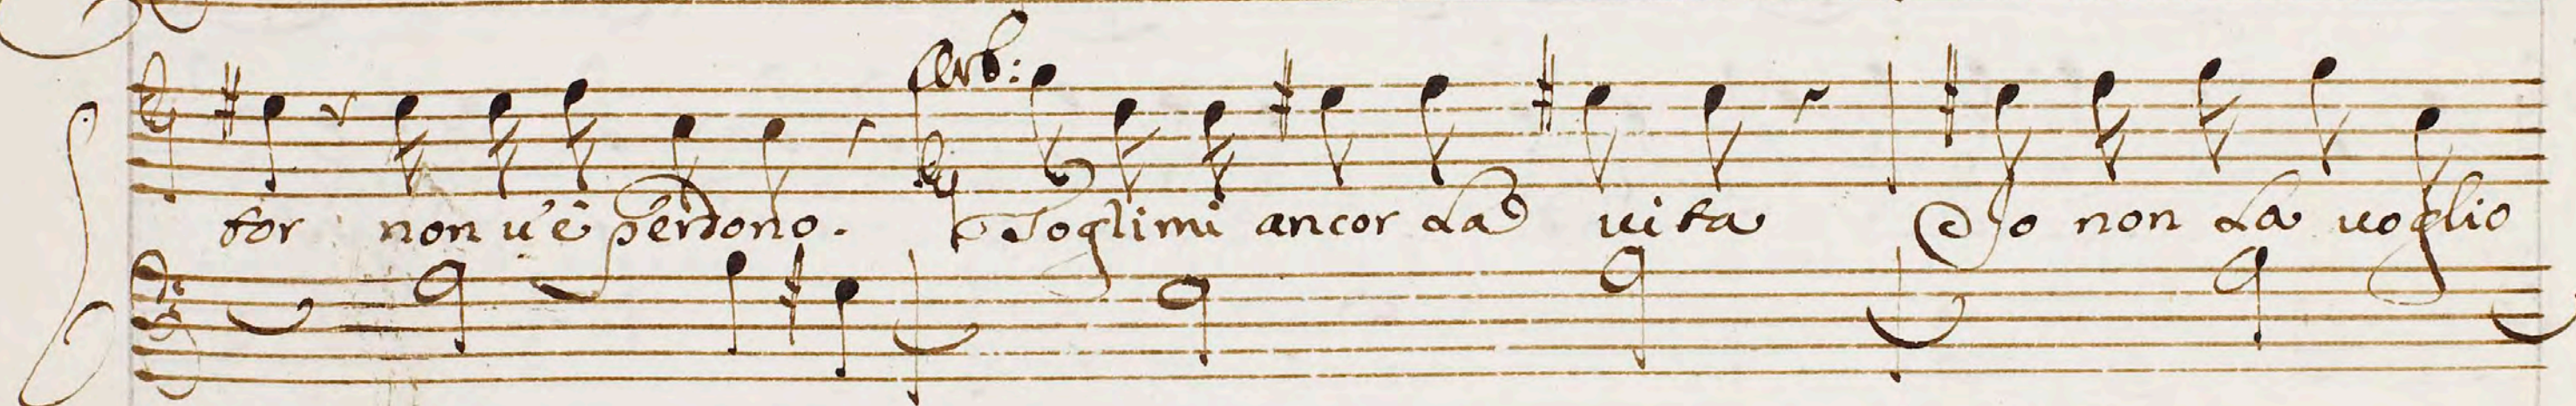 Arb:
tor non u'è perdono. Toglimi ancor La uita Io non La uoglio